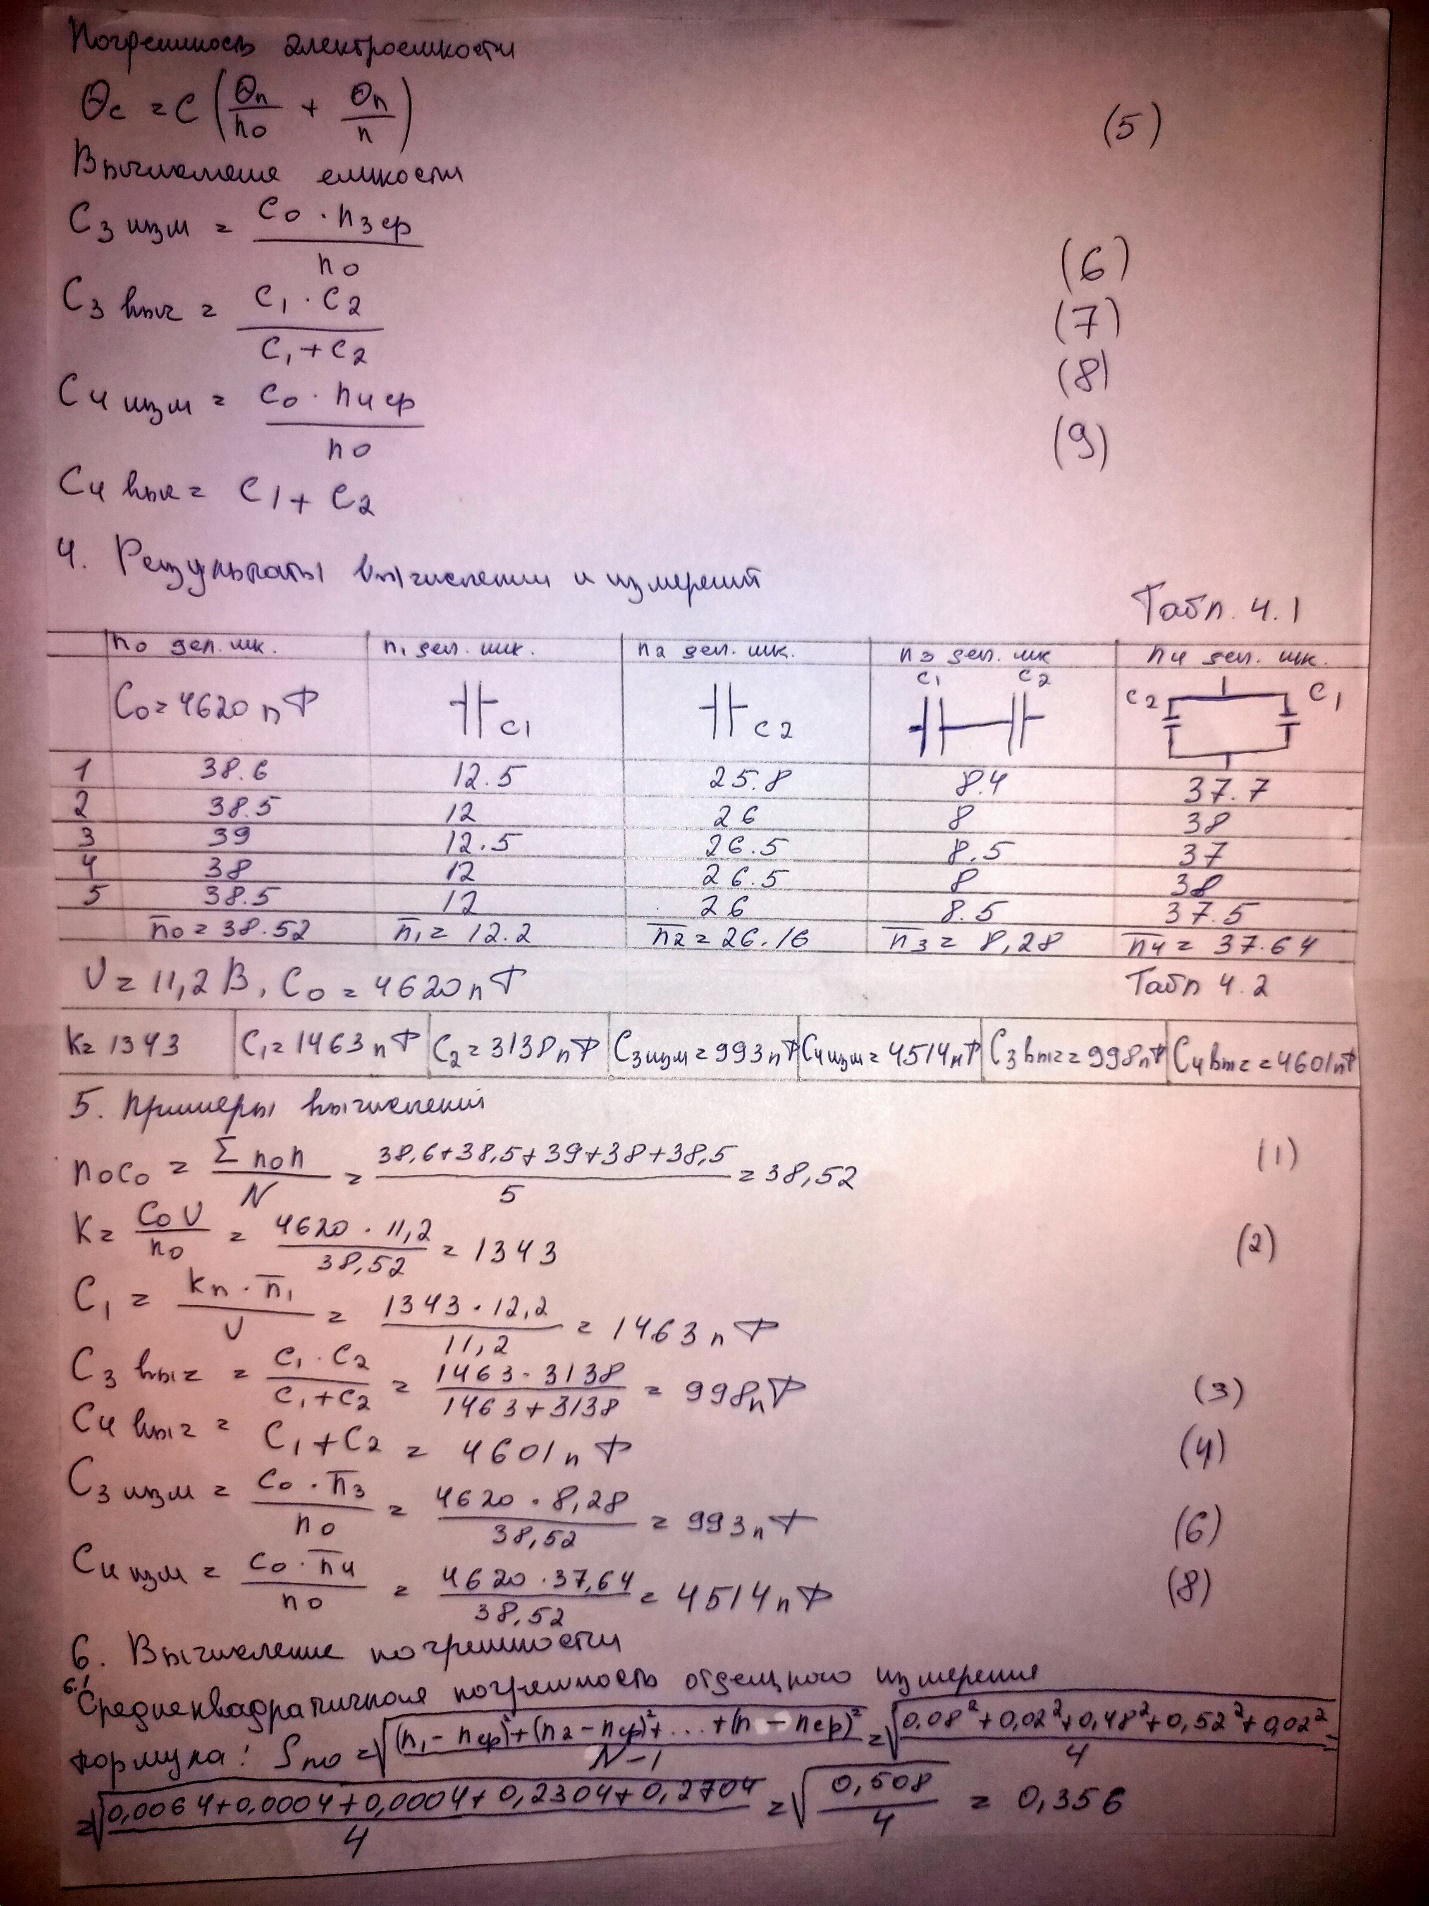 Погрешность электроемкости
Θc = C (Θn/n0 + Θn/n) (5)
Вычисление емкости
C3 изм = C0 · n3 ср / n0 (6)
C3 выч = C1 · C2 / C1 + C2 (7)
C4 изм = C0 · n4 ср / n0 (8)
C4 выч = C1 + C2 (9)
4. Результаты вычислений и измерений
Табл. 4.1
n0 дел. шк. n1 дел. шк. n2 дел. шк. n3 дел. шк n4 дел. шк.
C0 = 4620 пФ C1 C2 C1 C2 C2 C1
1 38.6 12.5 25.8 8.4 37.7
2 38.5 12 26 8 38
3 39 12.5 26.5 8.5 37
4 38 12 26.5 8 38
5 38.5 12 26 8.5 37.5
n̄0 = 38.52 n̄1 = 12.2 n̄2 = 26.16 n̄3 = 8,28 n̄4 = 37.64
U = 11,2 В, C0 = 4620 пФ Табл 4.2
K = 1343 C1 = 1463 пФ C2 = 3138 пФ C3изм = 993 пФ C4изм = 4514 пФ C3выч = 998 пФ C4выч = 4601 пФ
5. Примеры вычислений
n0C0 = Σ n0n / N = 38,6+38,5+39+38+38,5 / 5 = 38,52 (1)
K = C0 U / n0 = 4620 · 11,2 / 38,52 = 1343 (2)
C1 = Kn · n̄1 / U = 1343 · 12,2 / 11,2 = 1463 пФ
C3 выч = C1 · C2 / C1 + C2 = 1463 · 3138 / 1463 + 3138 = 998 пФ (3)
C4 выч = C1 + C2 = 4601 пФ (4)
C3 изм = C0 · n̄3 / n0 = 4620 · 8,28 / 38,52 = 993 пФ (6)
C4 изм = C0 · n̄4 / n0 = 4620 · 37,64 / 38,52 = 4514 пФ (8)
6. Вычисление погрешности
6.1 Среднеквадратичная погрешность отдельного измерения
формула: Sn0 = √((n1 − nср)² + (n2 − nср)² + ... + (n − nср)² / N−1) = √(0.08² + 0,02² + 0,48² + 0,52² + 0,02² / 4) =
= √(0,0064+0,0004+0,0004+0,2304+0,2704 / 4) = √(0,508 / 4) = 0,356